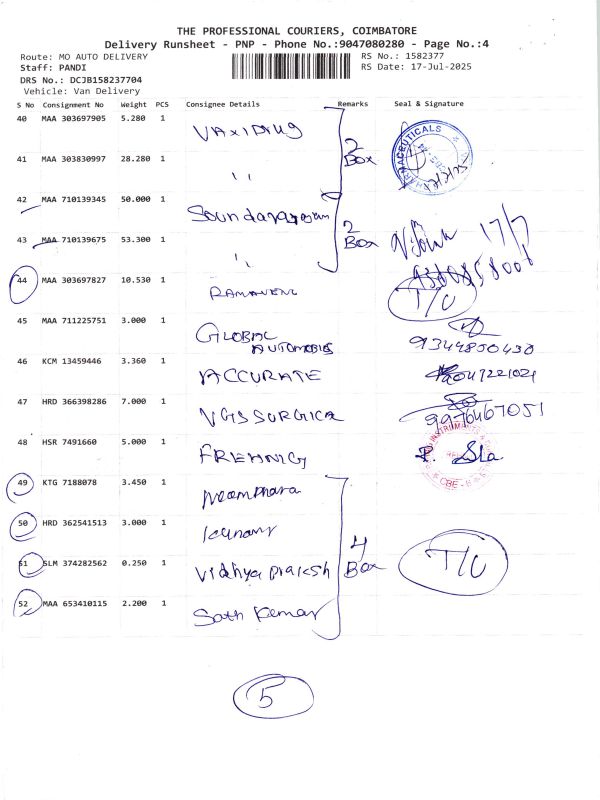 THE PROFESSIONAL COURIERS, COIMBATORE
Delivery Runsheet - PNP - Phone No.:9047080280 - Page No.:4
Route: MO AUTO DELIVERY RS No.: 1582377
Staff: PANDI RS Date: 17-Jul-2025
DRS No.: DCJB158237704
Vehicle: Van Delivery
S No Consignment No Weight PCS Consignee Details Remarks Seal & Signature
40 MAA 303697905 5.280 1 VAXIDRUG 2 Box
41 MAA 303830997 28.280 1 ''
42 MAA 710139345 50.000 1 Soundararajan 2 Box
43 MAA 710139675 53.300 1 '' 17/7
44 MAA 303697827 10.530 1 T/C
45 MAA 711225751 3.000 1 GLOBAL AUTOMOBILES 9344850430
46 KCM 13459446 3.360 1 ACCURATE
47 HRD 366398286 7.000 1 VGS SURGICA 9976467051
48 HSR 7491660 5.000 1
49 KTG 7188078 3.450 1 4 Box
50 HRD 362541513 3.000 1
51 SLM 374282562 0.250 1 Vidhya prakesh T/C
52 MAA 653410115 2.200 1 Sath Kumar
5